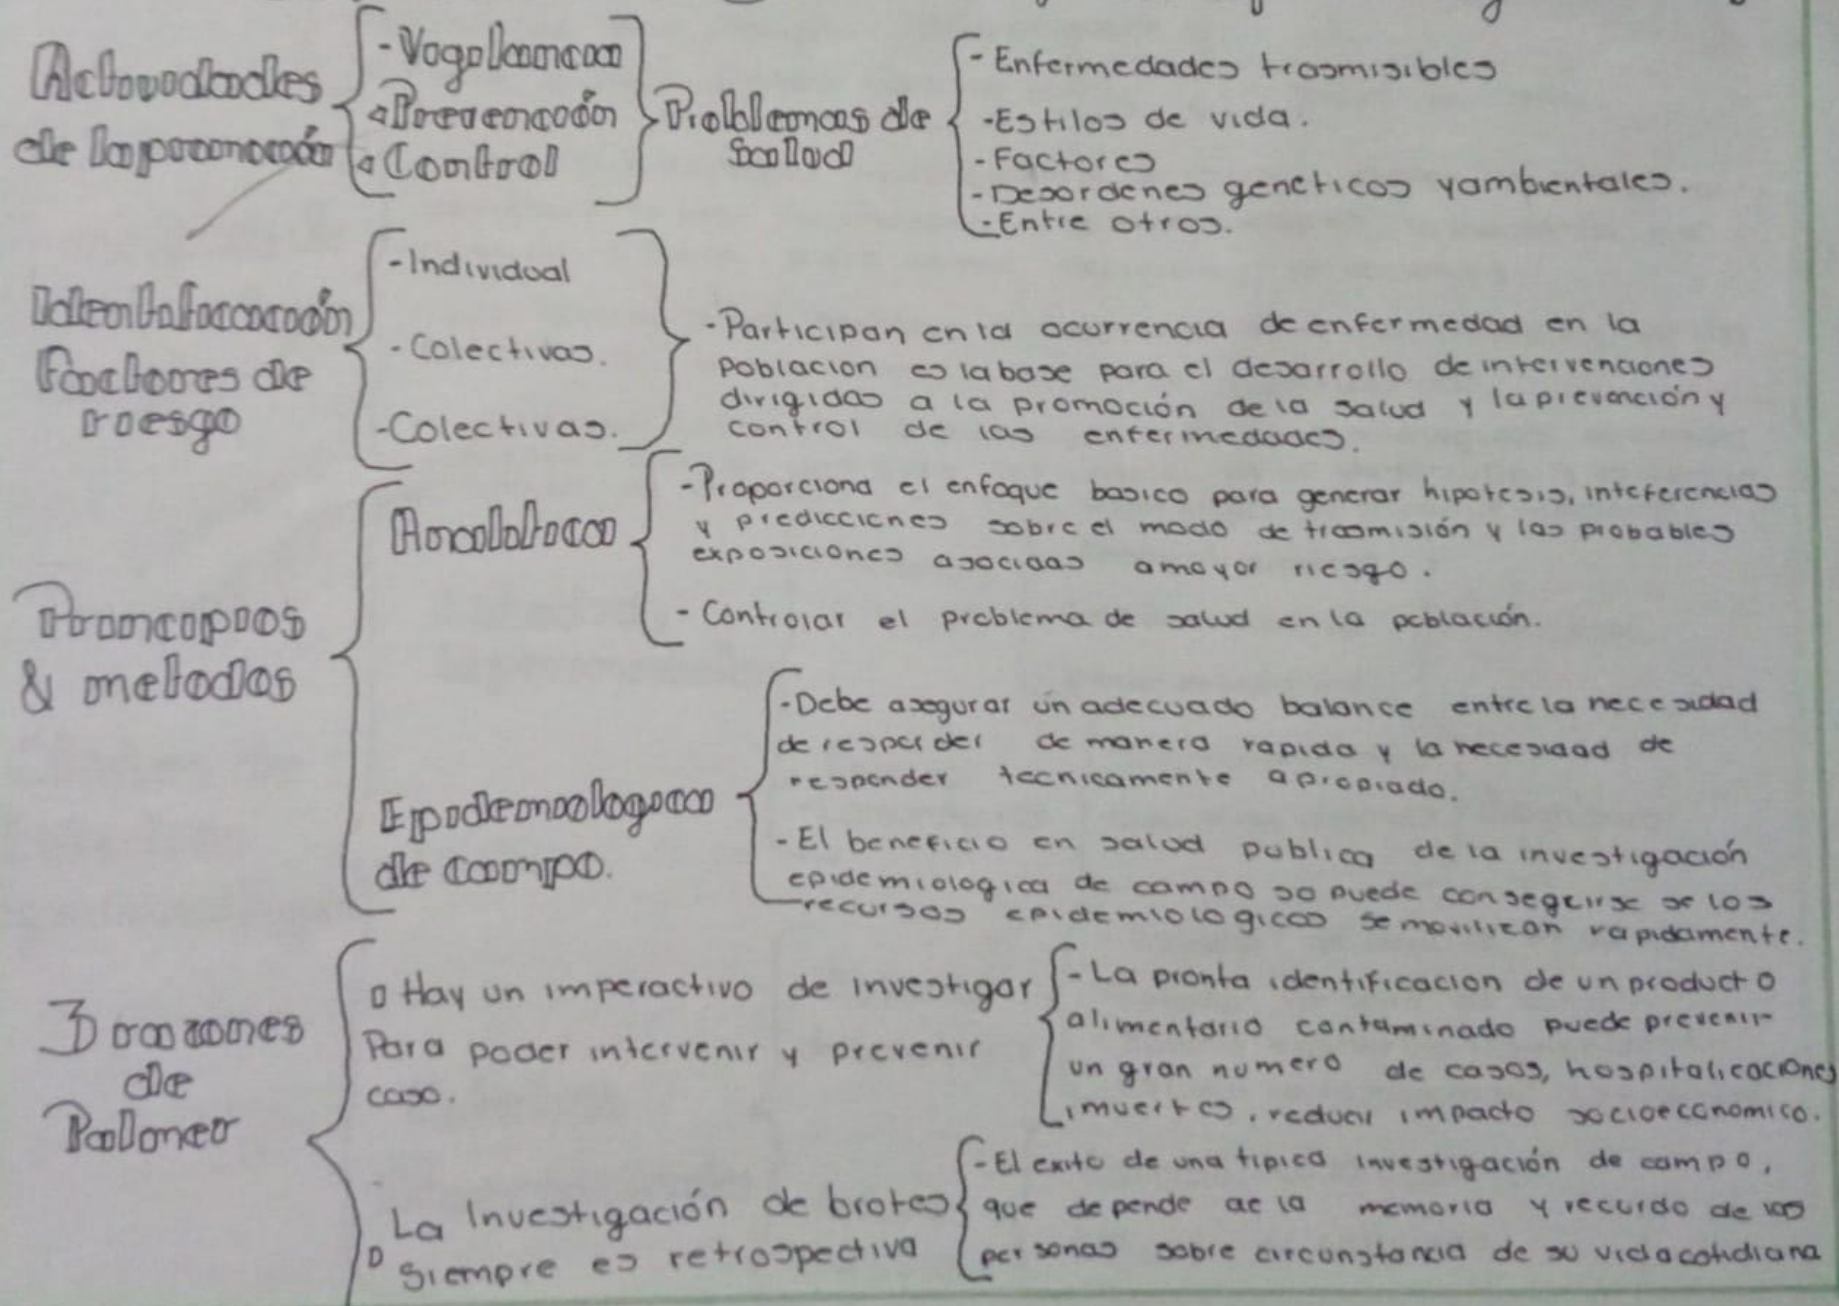 Actividades
de la promoción
- Vigilancia
• Prevención
• Control
Problemas de
Salud
- Enfermedades trasmisibles
- Estilos de vida.
- Factores
- Desordenes geneticos y ambientales.
- Entre otros.
Identificación
Factores de
riesgo
- Individual
- Colectivas.
- Colectivas.
- Participan en la ocurrencia de enfermedad en la
poblacion es la base para el desarrollo de intervenciones
dirigidas a la promoción de la salud y la prevención y
control de las enfermedades.
Principios
& metodos
Analitica
- Proporciona el enfoque basico para generar hipotesis, inteferencias
y predicciones sobre el modo de trasmisión y las probables
exposiciones asocidas a mayor riesgo.
- Controlar el problema de salud en la población.
Epidemiologica
de campo.
- Debe asegurar un adecuado balance entre la necesidad
de responder de manera rapida y la necesidad de
responder tecnicamente apropiado.
- El beneficio en salud publica de la investigación
epidemiologica de campo so puede consegirse se los
recursos epidemiologicos se movilizan rapidamente.
3 razones
de
Palmer
o Hay un imperactivo de investigar
Para poder intervenir y prevenir
caso.
- La pronta identificacion de un producto
alimentario contaminado puede prevenir
un gran numero de casos, hospitalicaciones
i muertes, reducir impacto socioeconomico.
o La Investigación de brotes
siempre es retrospectiva
- El exito de una tipica investigación de campo,
que depende de la memoria y recurdo de las
personas sobre circunstancia de su vida cotidiana